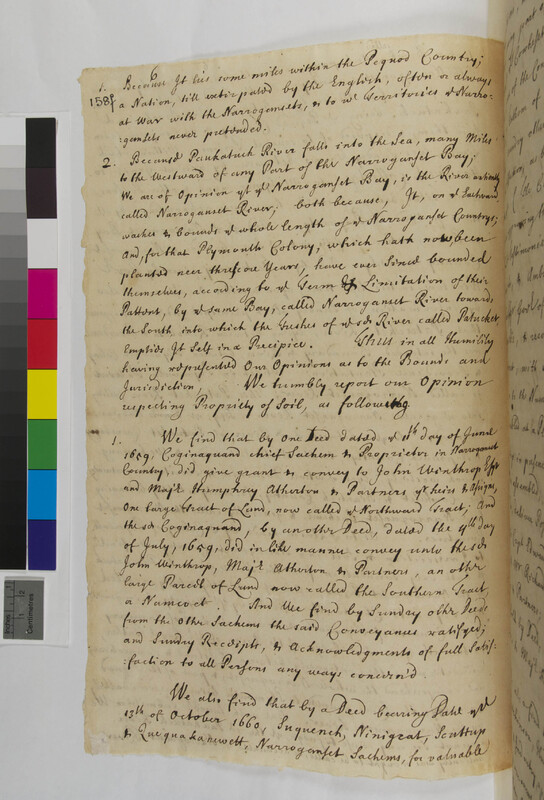 1. Because It lies some miles within the Pequod Country;
158f
a Nation, till extirpated by the English, often or always
at War with the Narrogansets, & to ye Territories ye Narro-
:gansets never pretended.
2. Because Paukatuck River falls into the Sea, many Miles
to the Westward of any Part of the Narroganset Bay;
We are of Opinion yt ye Narroganset Bay, is the River antiently
called Narroganset River; both because, It, on ye Eastward
washes & bounds ye whole length of ye Narroganset Country;
And, for that Plymouth Colony; which hath now been
planted near threscore Years, have ever Since bounded
themselves, according to ye Term Limitation of their
Pattent, by ye same Bay, called Narroganset River towards
the South, into which the Freshes of ye sd River called Patucket
Empties It Self in a Precipice. Thus in all Humility
having represented Our Opinions as to the Bounds and
Jurisdiction, We humbly report our Opinion
respecting Propriety of Soil, as following
1. We find that by one Deed dated ye 11th day of June
1659. Coginaquand chief Sachem & Proprietor in Narroganset
Country did give grant & convey to John Winthrop Esqr
and Majr Humphrey Atherton & Partners, yr heirs & Assigns,
One large Tract of Land, now called ye Northward Tract; And
the sd Coginaquand, by another Deed, dated the 4th day
of July, 1659, did in like manner convey unto the sd
John Winthrop, Majr Atherton & Partners, an other
large Parcel of Land now called the Southern Tract,
a Namcoct. And We find by Sundry othr Deeds
from the other Sachems the said Conveyances ratifyed;
and Sundry Receipts, & Acknowledgments of full Satis-
:faction to all Persons any ways concern'd
We also find that by a Deed bearing Date ye
13th of October 1660, Suquench, Ninigrat, Scuttup
& Quequakanewett, Narroganset Sachems, for valuable